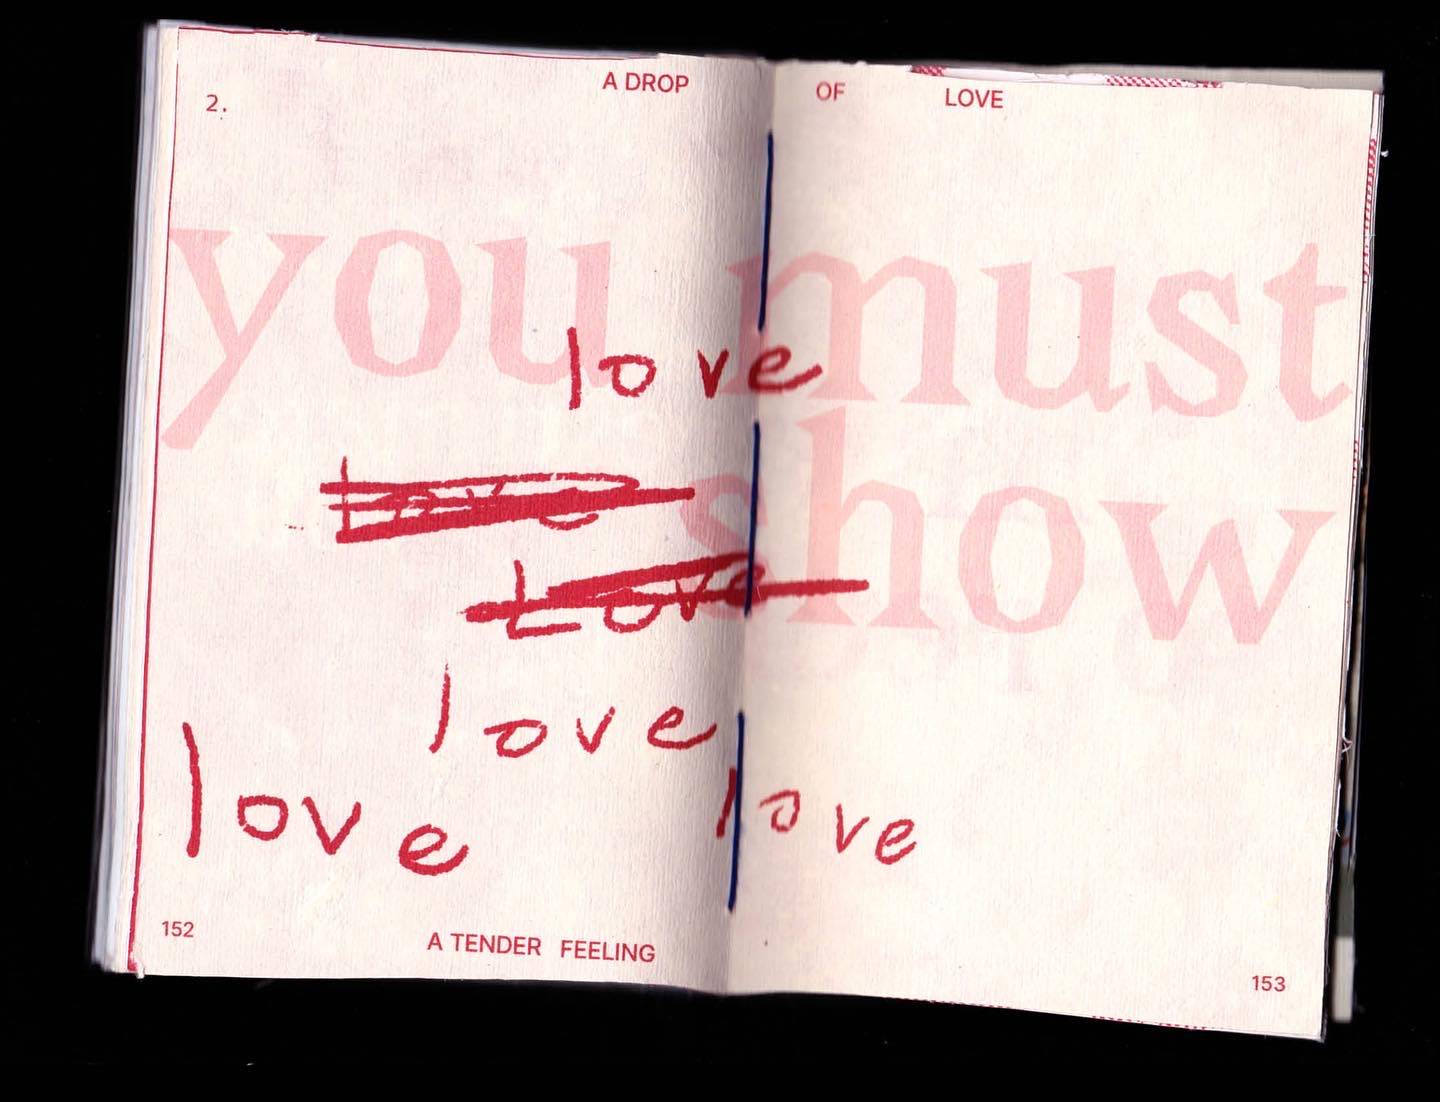 A DROP OF LOVE
2.
you must
love
show
Love
Love
love
love
love
152
A TENDER FEELING
153